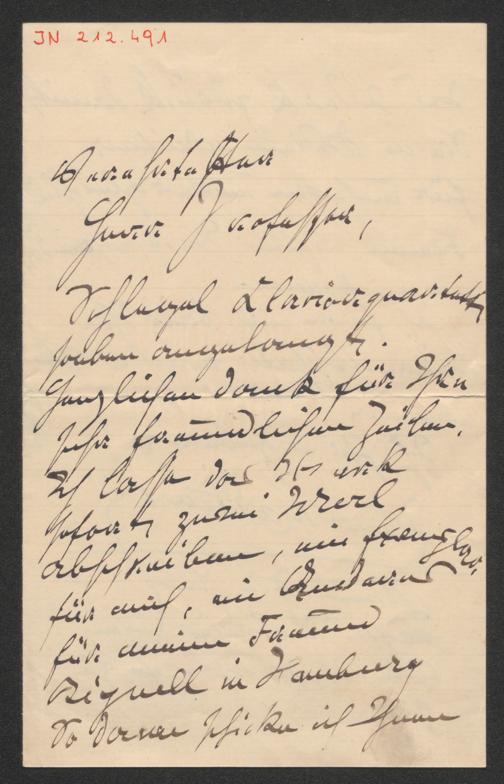 IN 212.491
Verehrtester
Herr Professor,
Schlegel Clavierquartett
soeben angelangt.
Herzlichen Dank für Ihre
sehr freundlichen Zeilen.
Ich lasse das Werk
sofort zwei Mal
abschreiben, ein Exemplar
für mich, ein Anderes
für meinen Freund
in Hamburg
So dann schicke ich Ihnen